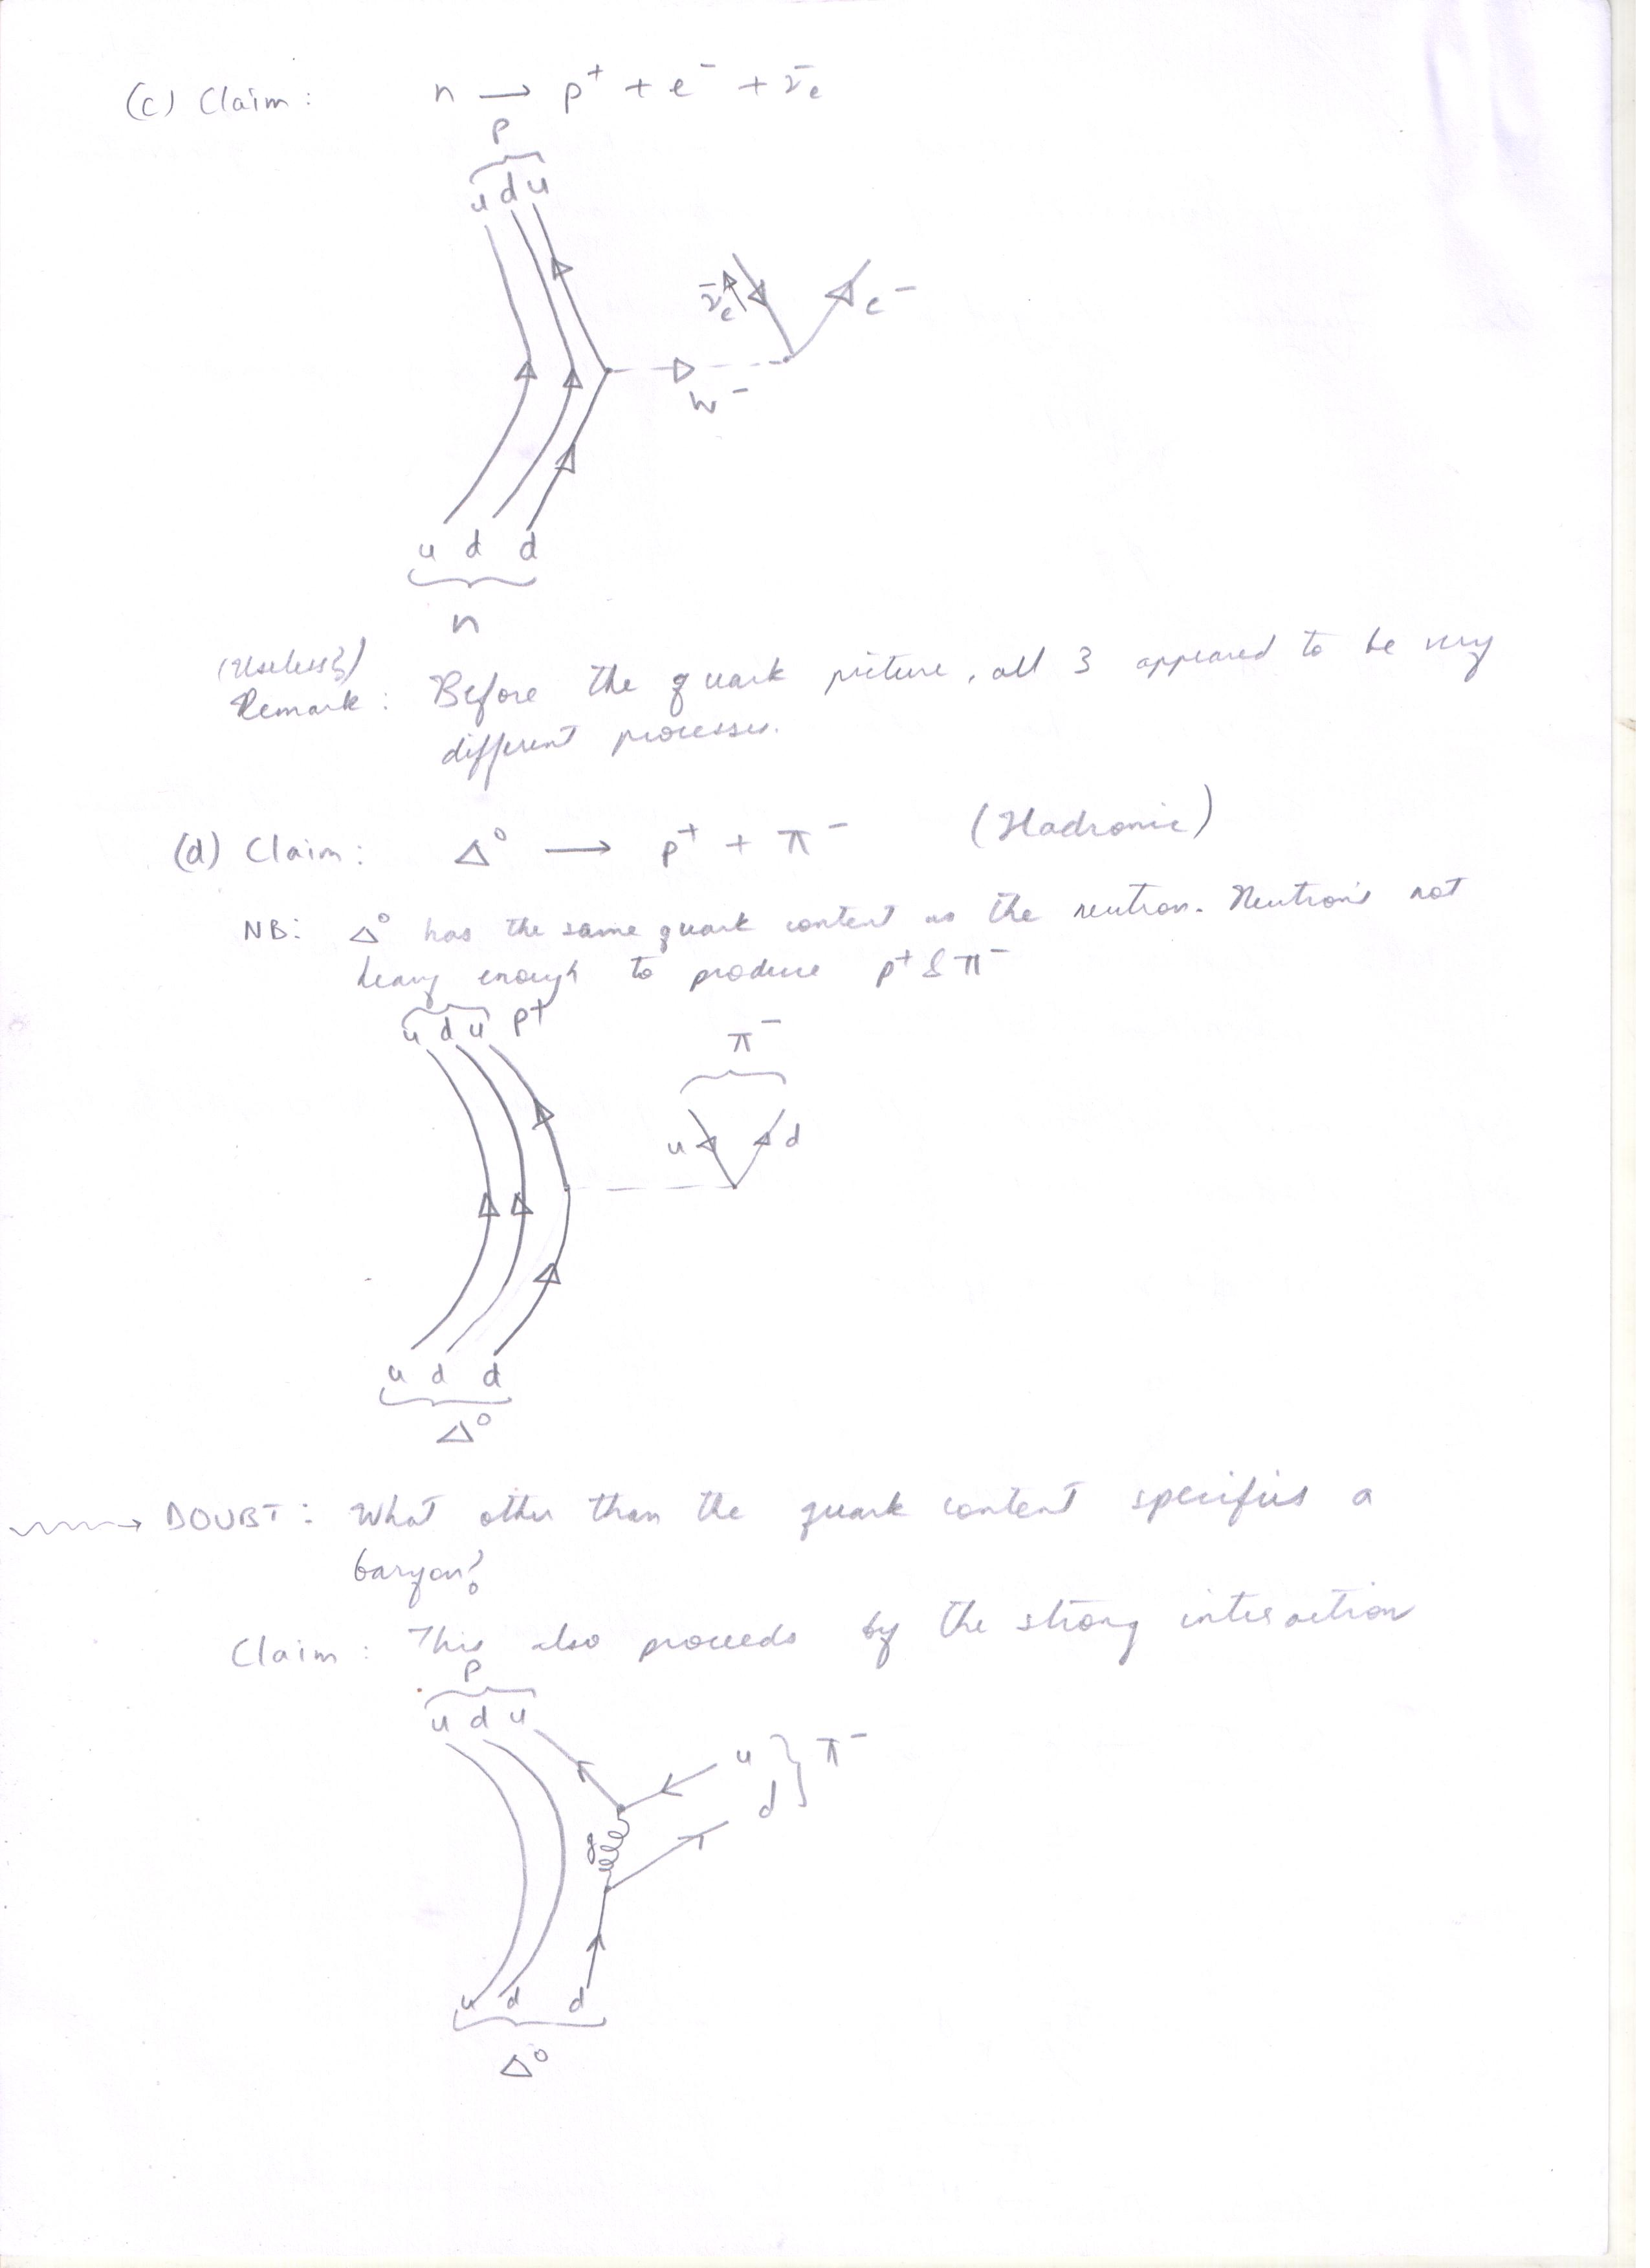 (c) Claim : n → p⁺ + e⁻ + ν̄ₑ
p
u d u
ν̄ₑ e⁻
W⁻
u d d
n
(Useless?)
Remark : Before the quark picture, all 3 appeared to be very
different processes.
(d) Claim : Δ⁰ → p⁺ + π⁻ (Hadronic)
NB: Δ⁰ has the same quark content as the neutron. Neutron's not
heavy enough to produce p⁺ & π⁻
u d u p⁺
π⁻
u d
u d d
Δ⁰
DOUBT : What other than the quark content specifies a
baryon?
Claim : This also proceeds by the strong interaction
p
u d u
u } π⁻
d
g
u d d
Δ⁰